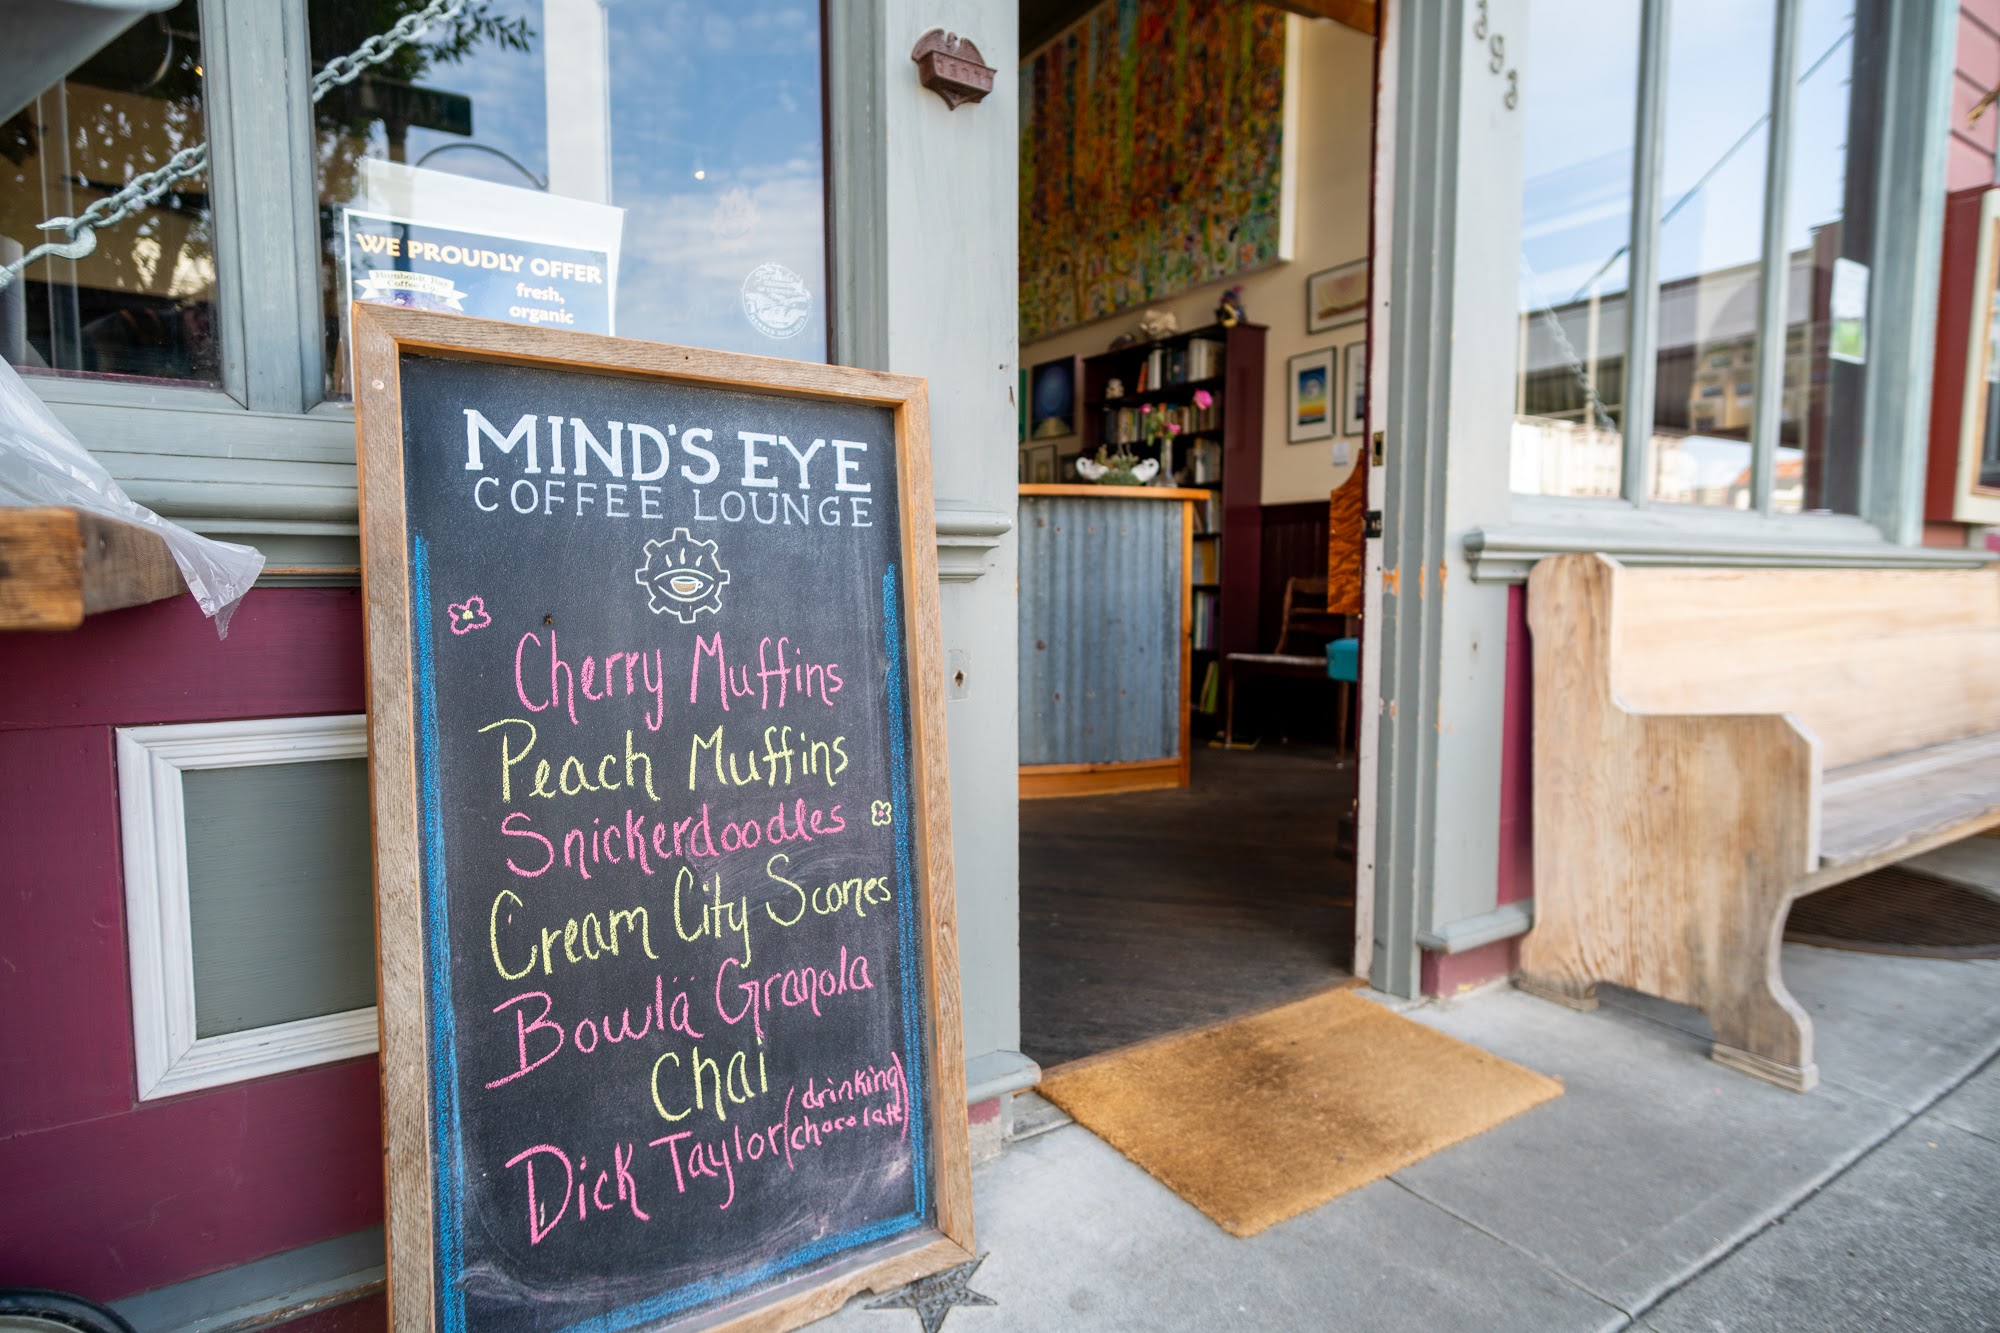 WE PROUDLY OFFER
Humboldt Bay
Coffee Co.
fresh,
organic
393
MIND'S EYE
COFFEE LOUNGE
Cherry Muffins
Peach Muffins
Snickerdoodles
Cream City Scones
Bowlä Granola
Chai
Dick Taylor (drinking
chocolate)